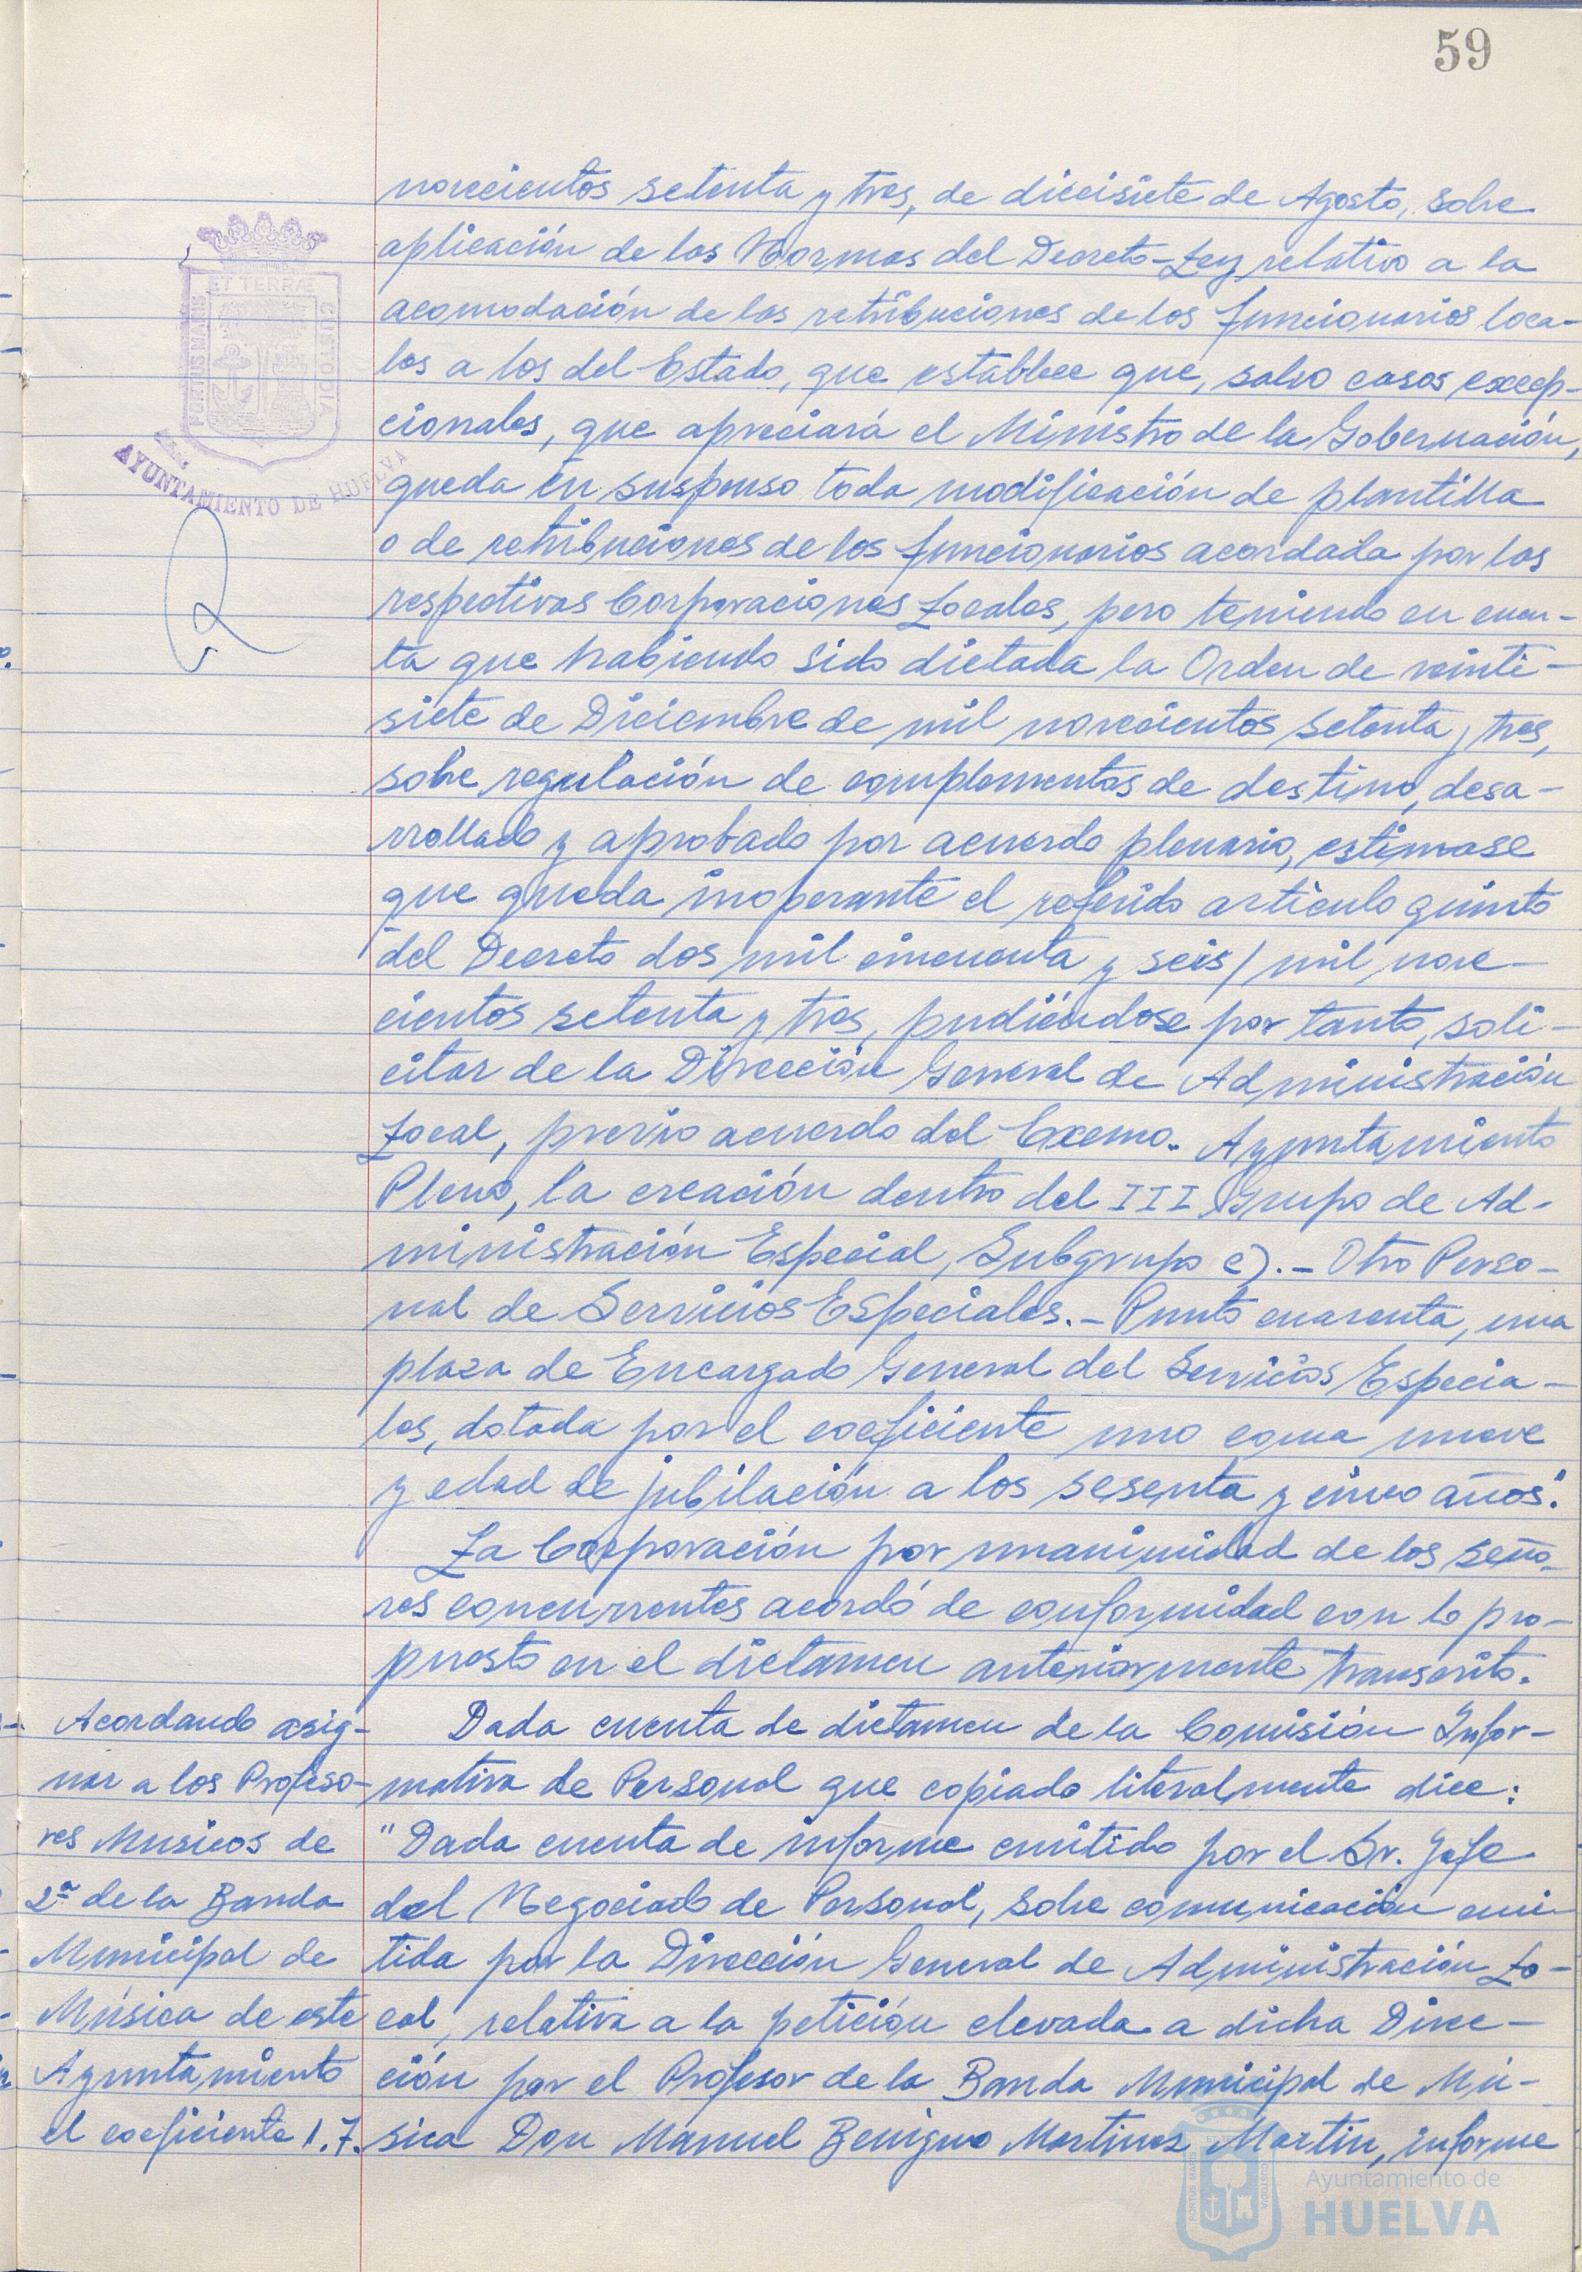 59
novecientos setenta y tres, de diecisiete de Agosto, sobre
aplicación de las Normas del Decreto-Ley relativo a la
acomodación de las retribuciones de los funcionarios loca-
les a los del Estado, que establece que, salvo casos excep-
cionales, que apreciará el Ministro de la Gobernación,
queda en suspenso toda modificación de plantilla
o de retribuciones de los funcionarios acordada por las
respectivas Corporaciones Locales, pero teniendo en cuen-
ta que habiendo sido dictada la Orden de veinti-
siete de Diciembre de mil novecientos setenta y tres,
sobre regulación de complementos de destino, desa-
rrollado y aprobado por acuerdo plenario, estimase
que queda inoperante el referido articulo quinto
del Decreto dos mil cincuenta y seis / mil nove-
cientos setenta y tres, pudiéndose por tanto, soli-
citar de la Dirección General de Administración
Local, previo acuerdo del Excmo. Ayuntamiento
Pleno, la creación dentro del III Grupo de Ad-
ministración Especial, Subgrupo c).- Otro Perso-
nal de Servicios Especiales.- Punto cuarenta, una
plaza de Encargado General del Servicios Especia-
les, dotada por el coeficiente uno coma nueve
y edad de jubilación a los sesenta y cinco años".
La Corporación por unanimidad de los seño-
res concurrentes acordó de conformidad con lo pro-
puesto en el dictamen anteriormente transcrito.
Acordando asig-
nar a los Profeso-
res Musicos de
2ª de la Banda
Municipal de
Música de este
Ayuntamiento
el coeficiente 1.7.
Dada cuenta de dictamen de la Comisión Infor-
mativa de Personal que copiado literalmente dice:
"Dada cuenta de informe emitido por el Sr. Jefe
del Negociado de Personal, sobre comunicación emi-
tida por la Dirección General de Administración Lo-
cal, relativa a la petición elevada a dicha Direc-
ción por el Profesor de la Banda Municipal de Mú-
sica Don Manuel Benigno Martinez Martin, informe
PORTUS MARIS
ET TERRÆ
CUSTODIA
AYUNTAMIENTO DE HUELVA
Ayuntamiento de
HUELVA